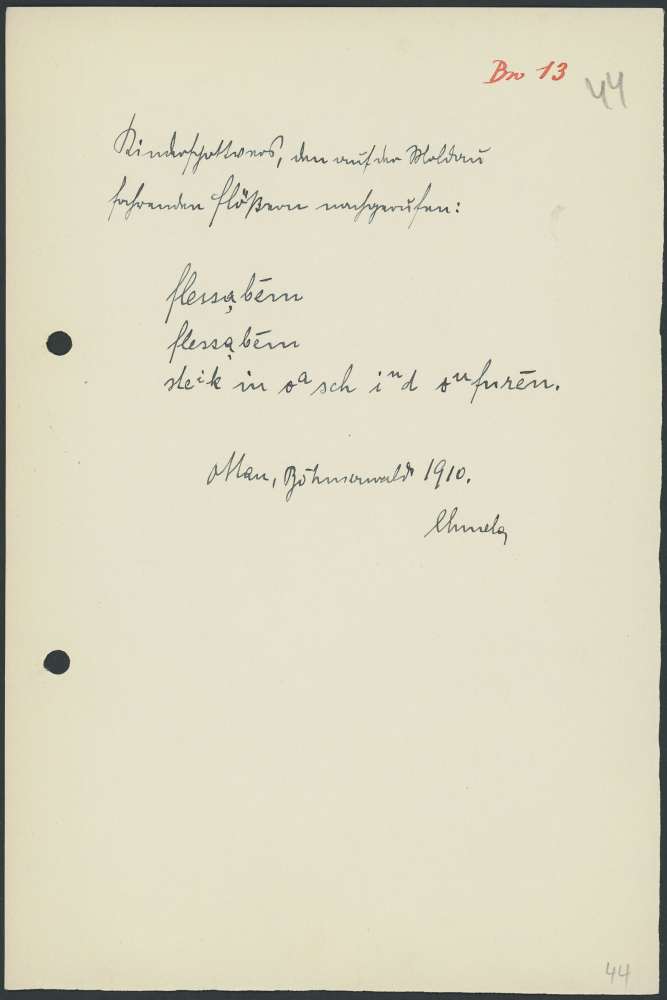 Bw 13
44
Kinderspottvers, den auf der Moldau
fahrenden Flößern nachgerufen:
flessąbēm
flessąbēm
steck in oᵃsch iⁿd
Böhmerwald 1910.
44